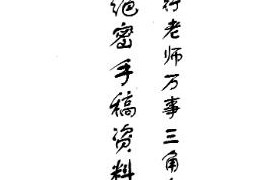 行老师万事三角
绝密手稿资料